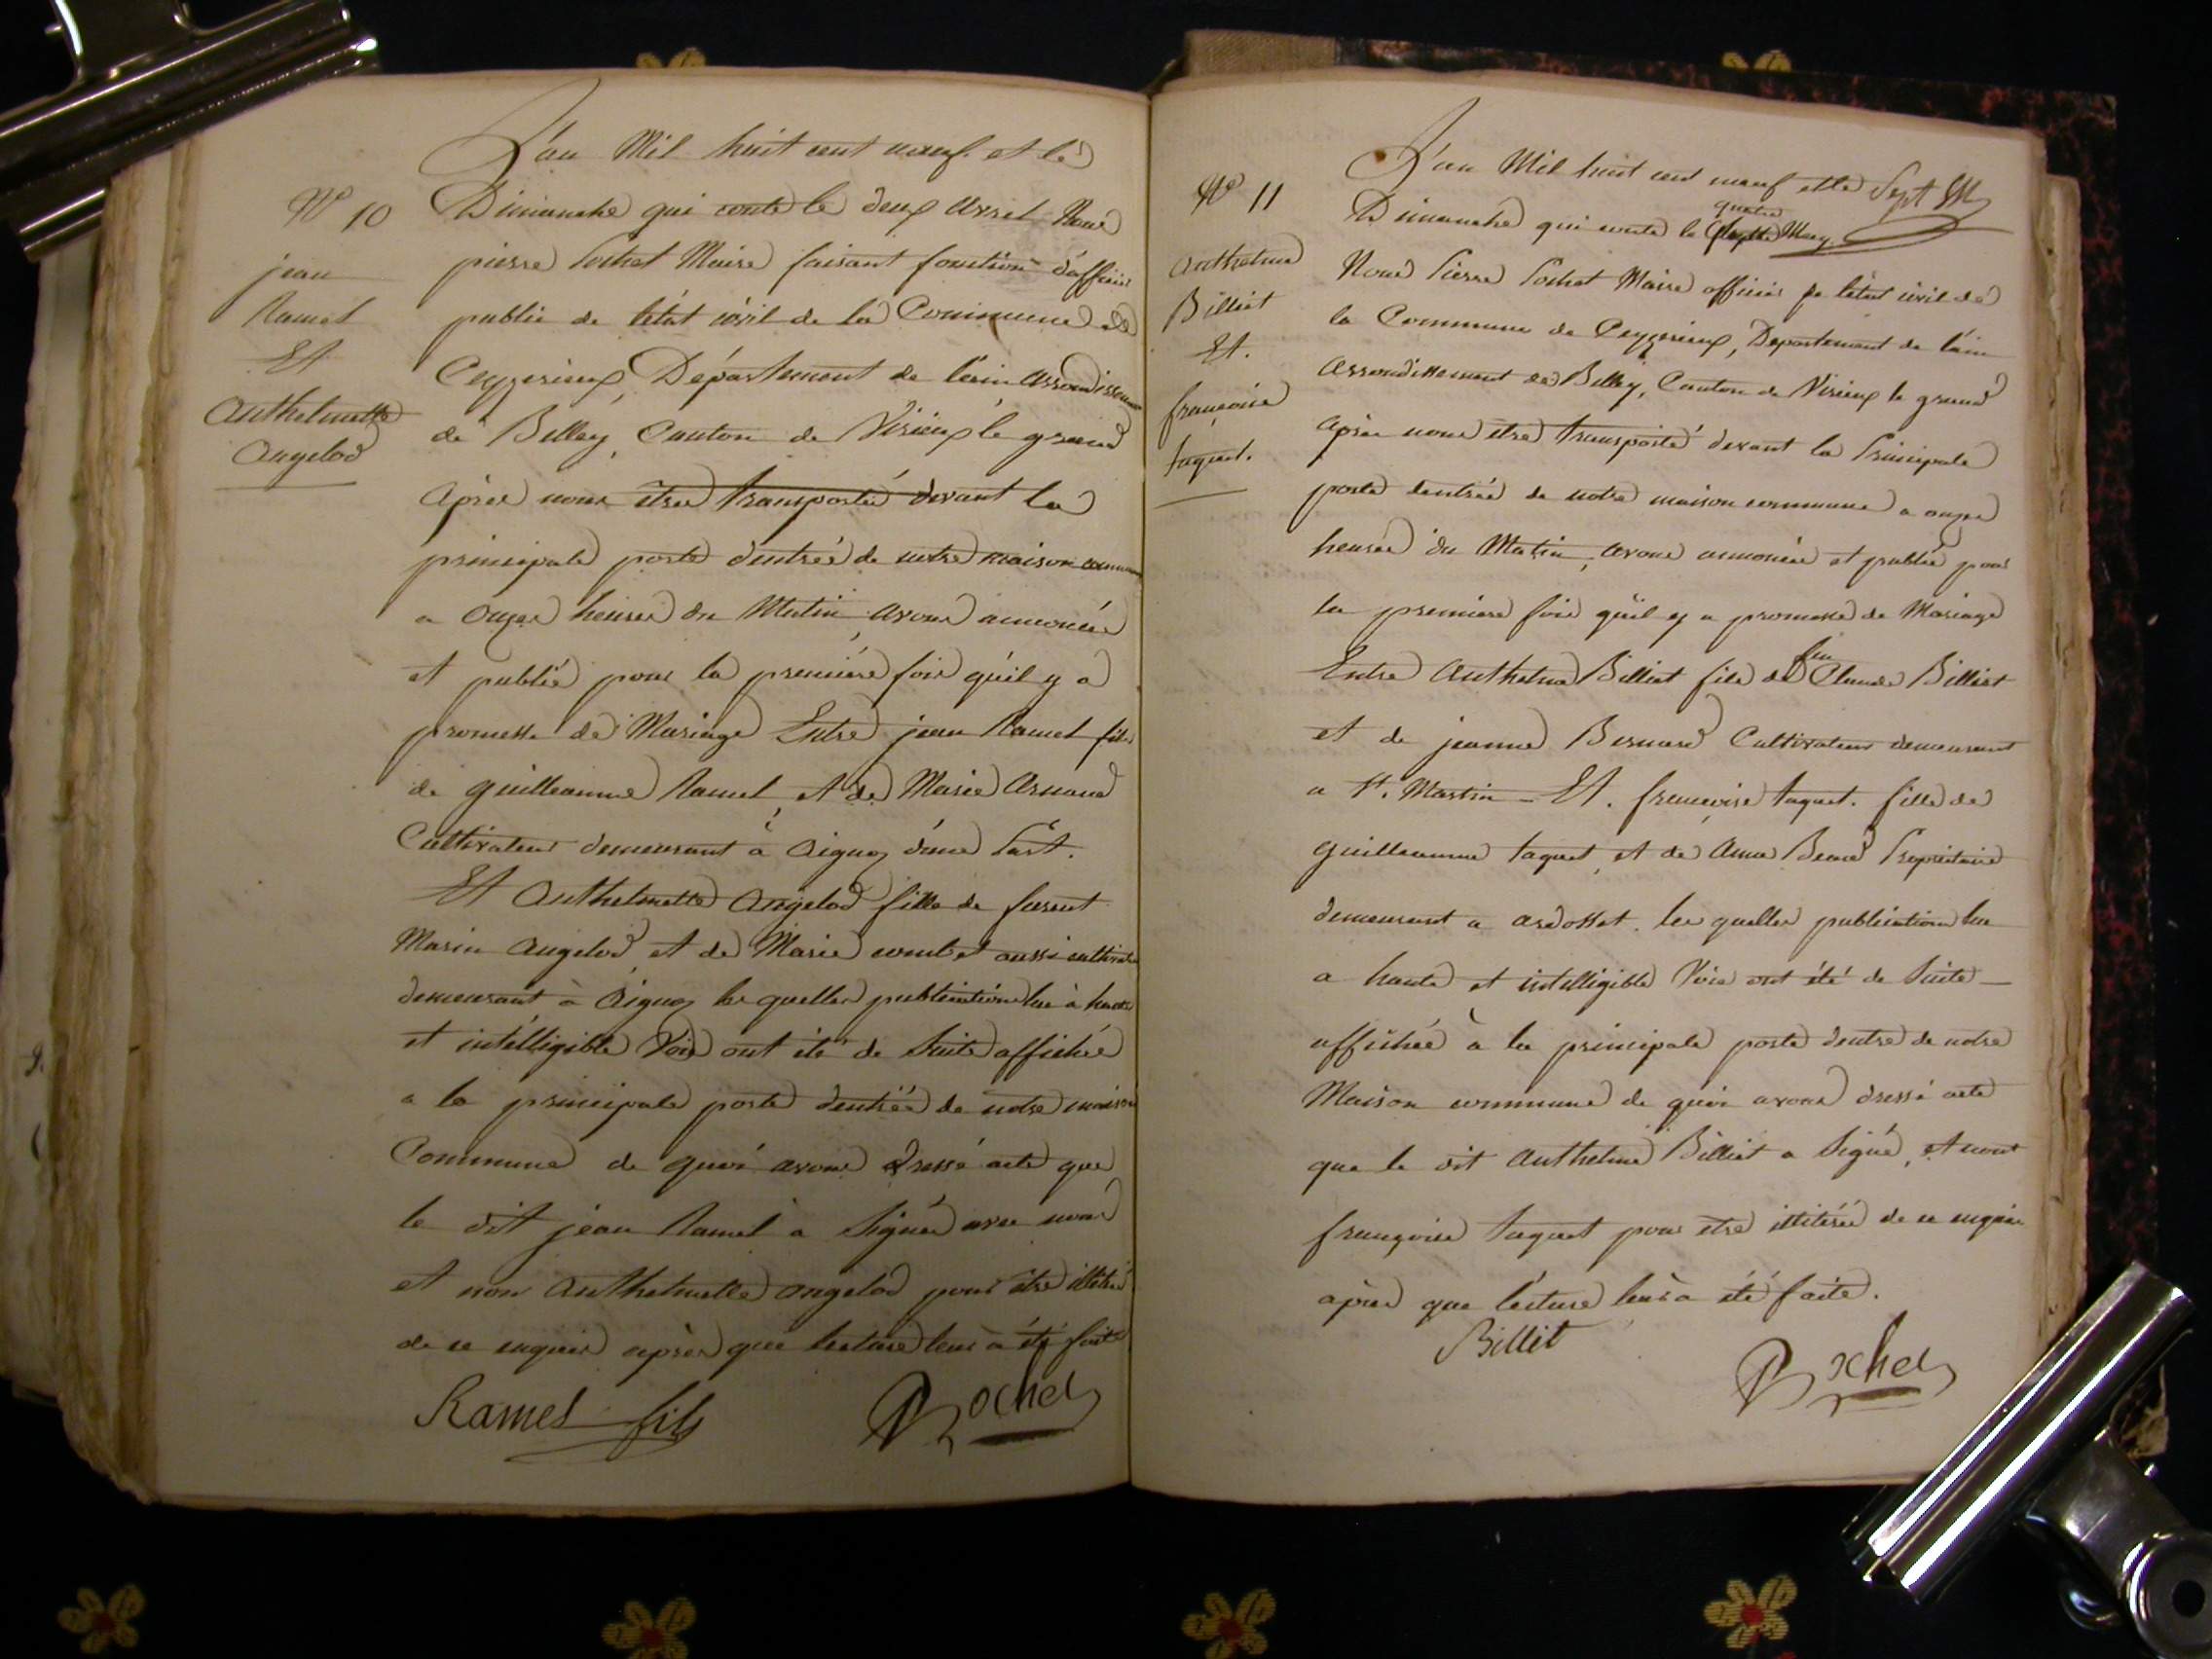 L'an Mil huit cent neuf. et le
N° 10
Dimanche qui conte le deux avril Nous
pierre Pochet Maire faisant fonction d'officier
jean
Ramel
Et
Anthelmette
Angelod
public de l'état civil de la Commune de
Ceyzerieux, Département de l'ain arrondissement
de Belley, Canton de Virieux le grand
après nous être transporté devant la
principale porte d'entrée de notre maison commune
a onzes heures du Matin, avons annoncée
et publié pour la première fois qu'il y a
promesse de Mariage Entre jean Ramel fils
de guilleaume Ramel, et de Marie Arnaud
Cultivateur demeurant à aignoz d'une Part.
Et Anthelmette Angelod fille de
Marin Angelod et de Marie combet aussi cultivateur
demeurant à Aignoz les quelles publications lue à haute
et intélligible Voix ont été de Suite affichée
a la principale porte d'entrée de notre maison
Commune de quoi avons dressé acte que
le dit jean Ramel a Signé avec nous
et non Anthelmette angelod pour être illitéré
de ce enquis après que lecture leur à été faite
Ramel fils
Pochet
L'an Mil huit cent neuf et le Sept
N° 11
quatre
Dimanche qui conte le May
Anthelme
Billiet
Et.
françoise
taquet.
Nous Pierre Pochet Maire officier de l'état civil de
la Commune de Ceyzerieux, Departement de l'ain
Arrondissement de Belley, Canton de Virieux le grand
après nous être transporté devant la Principale
porte d'entrée de notre maison commune a onzes
heures du Matin, avons annoncée et publié pour
la première fois qu'il y a promesse de Mariage
Entre Anthelme Billiet fils de feu Claude Billiet
et de jeanne Bernard Cultivateur demeurant
a St. Martin - Et. françoise taquet. fille de
guilleaume taquet, et de Propriétaire
demeurant a ardosset. les quelles publications lue
a haute et intelligible Voix ont été de Suite -
affichée à la principale porte d'entre de notre
Maison commune de quoi avons dressé acte
que le dit Anthelme Billiet a Signé, et nont
françoise taquet pour être illitérée de ce enquis
après que lecture leur a été faite.
Billit
Pochet